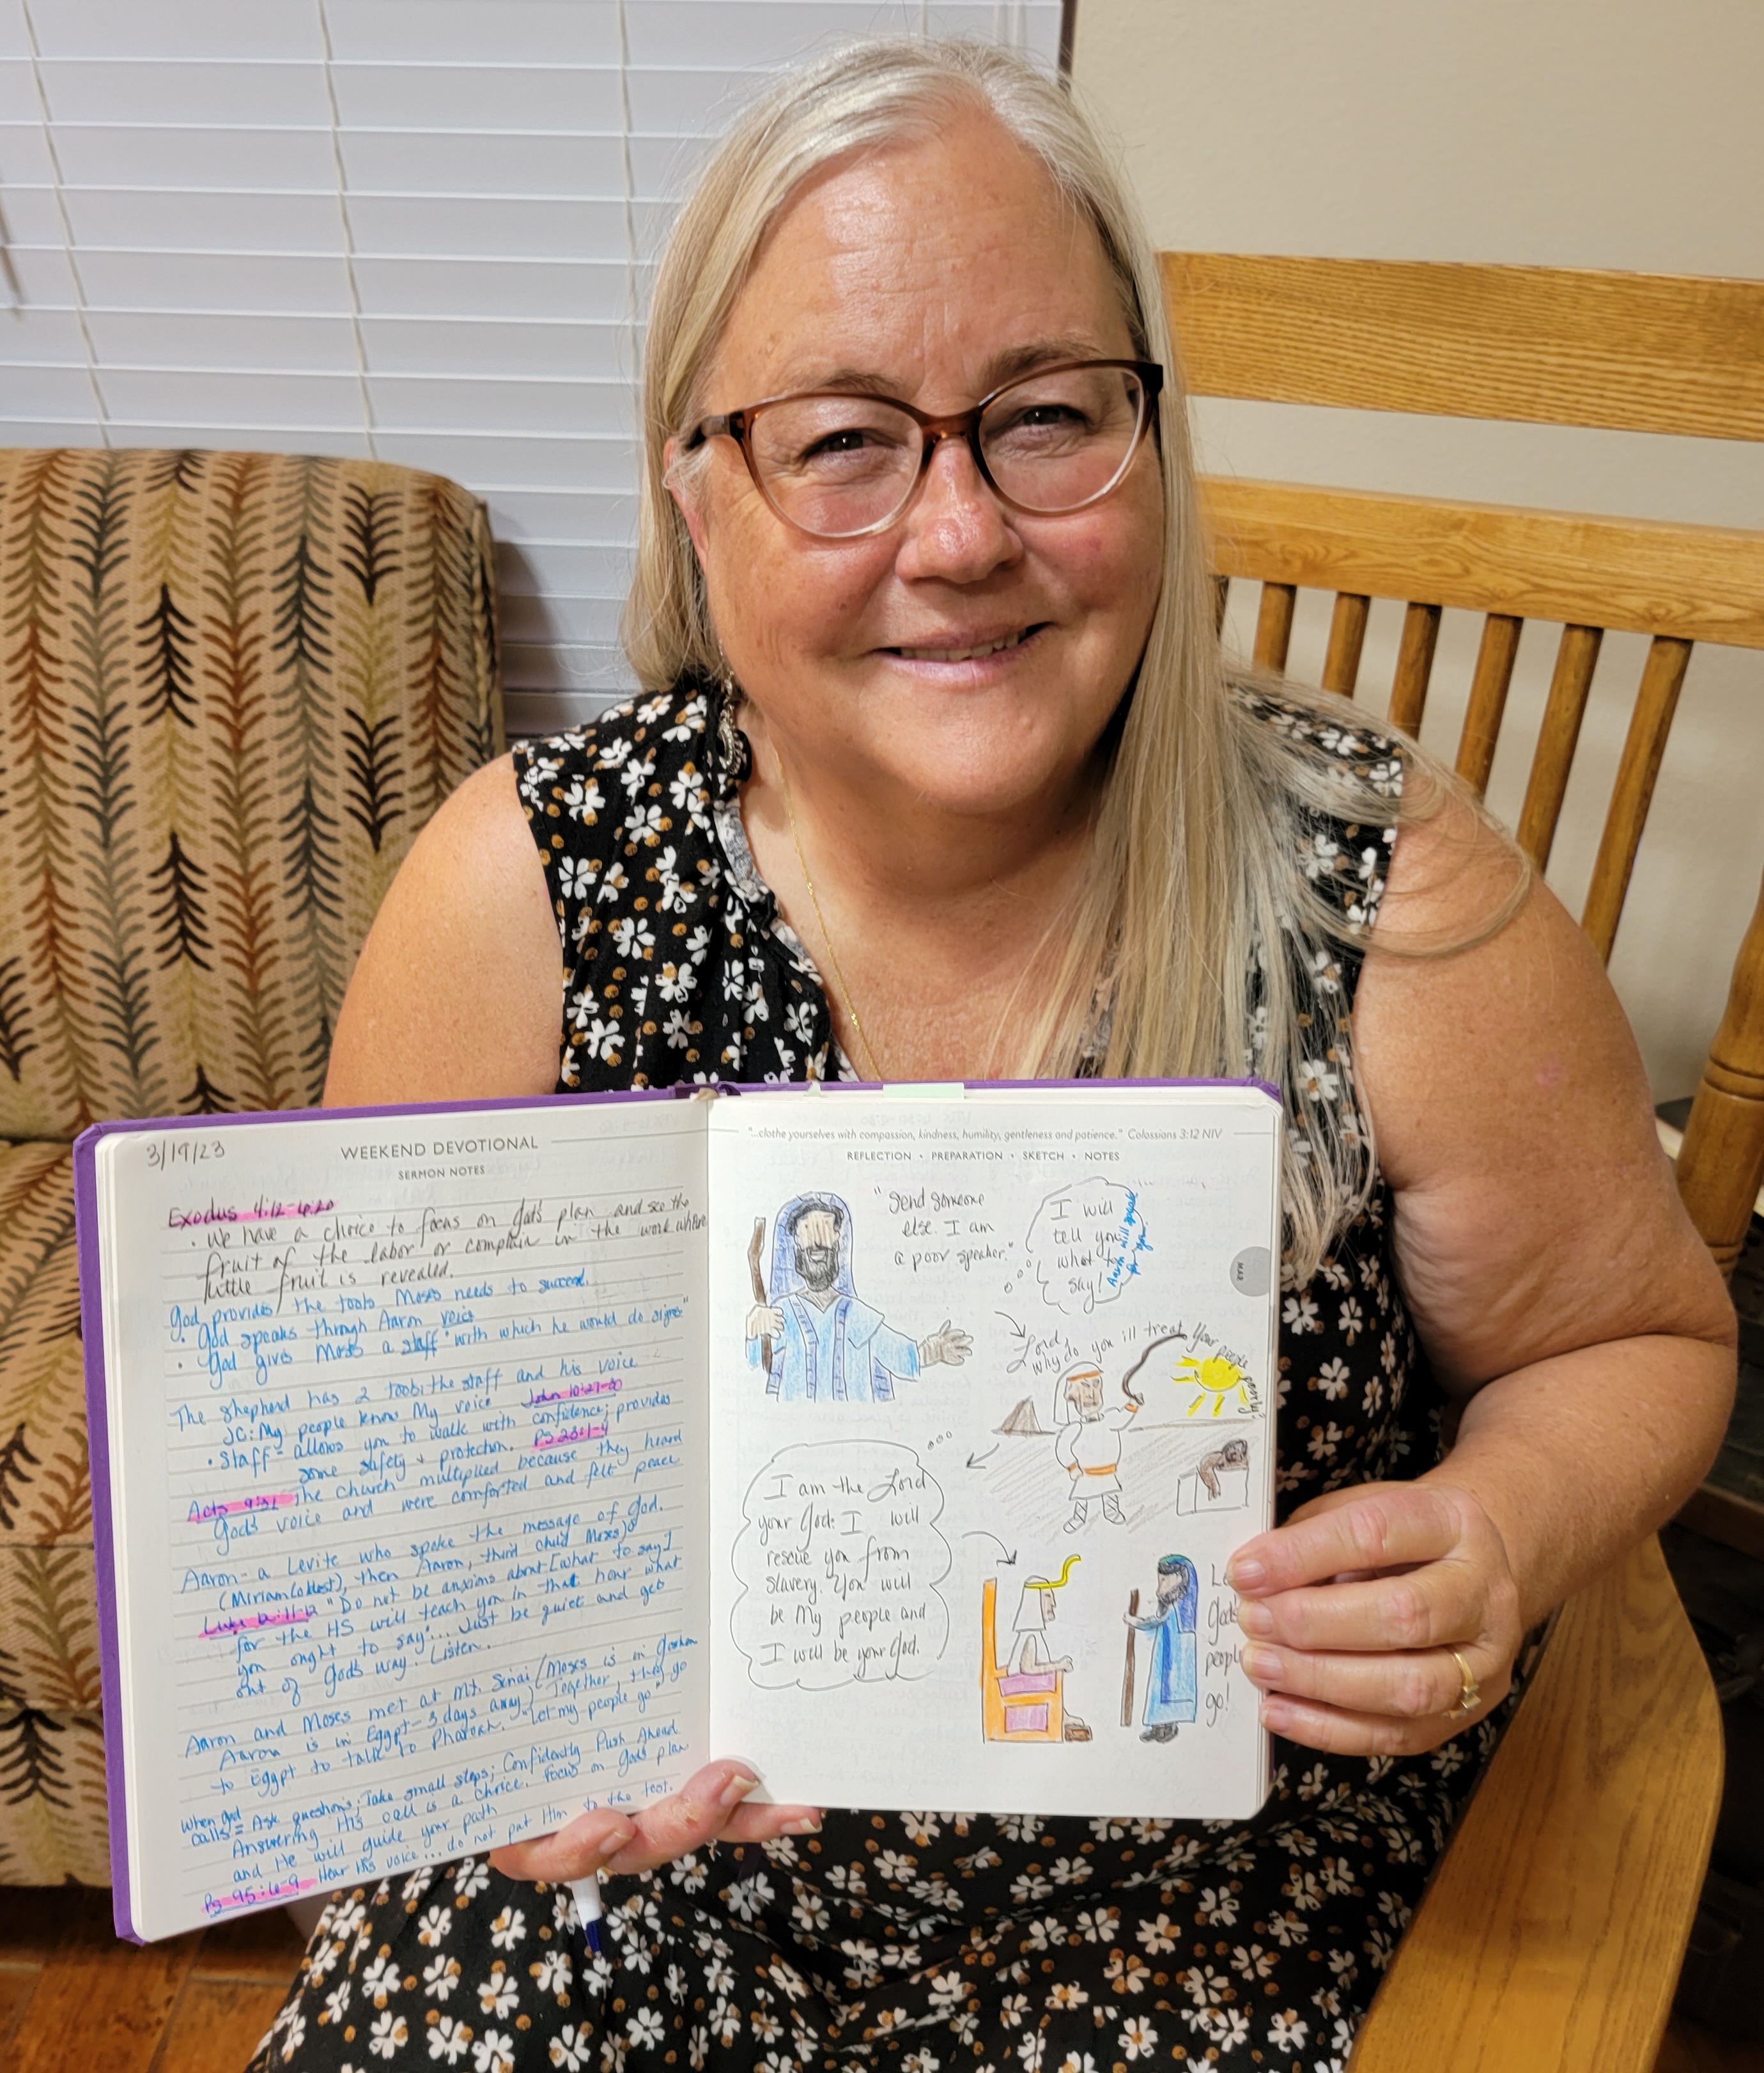 3/19/23
WEEKEND DEVOTIONAL
SERMON NOTES
Exodus 4:12-6:20
• We have a choice to focus on God's plan and see the
fruit of the labor or complain in the work where
little fruit is revealed.
God provides the tools Moses needs to succeed.
• God speaks through Aaron voice
• God gives Moses a staff "with which he would do signs"
The shepherd has 2 tools: the staff and his voice
JC: My people know My voice John 10:27-30
• Staff - allows you to walk with confidence; provides
some safety + protection. Ps 23:1-4
Acts 9:31 The church multiplied because they heard
God's voice and were comforted and felt peace
Aaron - a Levite who spoke the message of God.
(Miriam (oldest), then Aaron, third child Moses)
Luke 12:11-12 "Do not be anxious about [what to say]
for the HS will teach you in that hour what
you ought to say"... Just be quiet and get
out of God's way. Listen.
Aaron and Moses met at Mt. Sinai (Moses is in Goshen
Aaron is in Egypt - 3 days away) Together, they go
to Egypt to talk to Pharoah. "Let my people go"
When God
calls = Ask questions; Take small steps; Confidently Push Ahead
Answering His call is a choice. Focus on God's plan
and He will guide your path
Ps 95:6-9 Hear His voice... do not put Him to the test.
"...clothe yourselves with compassion, kindness, humility, gentleness and patience." Colossians 3:12 NIV
REFLECTION • PREPARATION • SKETCH • NOTES
"Send someone
else. I am
a poor speaker."
I will
tell you
what to
say!
Aaron will speak
for you.
MAR
Lord,
why do you ill treat Your people
I am the Lord
your God: I will
rescue you from
slavery. You will
be My people and
I will be your God.
God's
people
go!